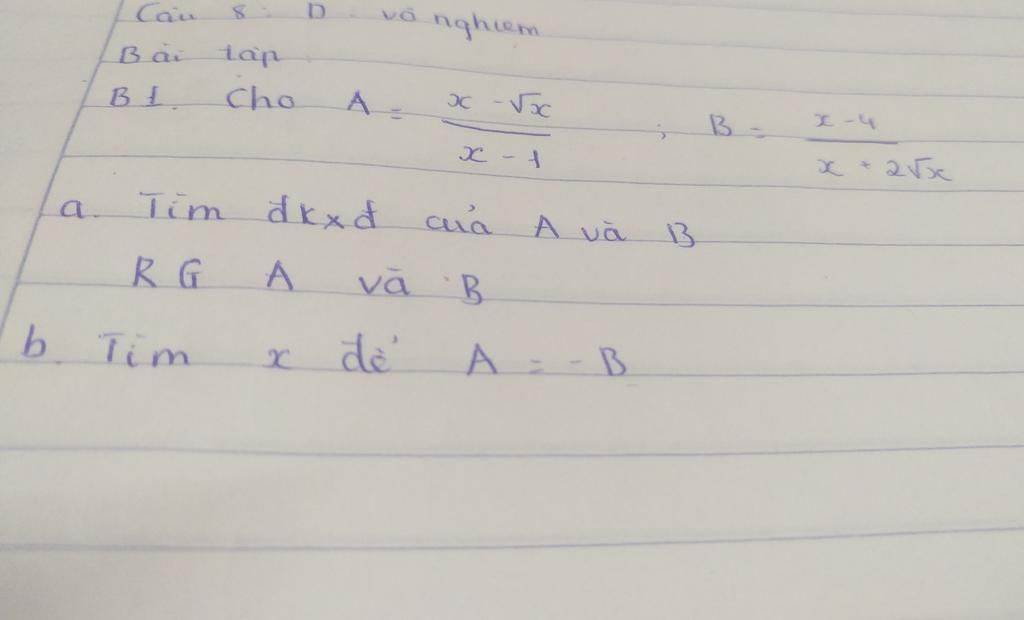 Câu 8: D. vô nghiệm
Bài tập
B1. Cho A = \frac{x - \sqrt{x}}{x - 1} ; B = \frac{x - 4}{x + 2\sqrt{x}}
a. Tìm đkxđ của A và B
RG A và B
b. Tìm x để A = - B